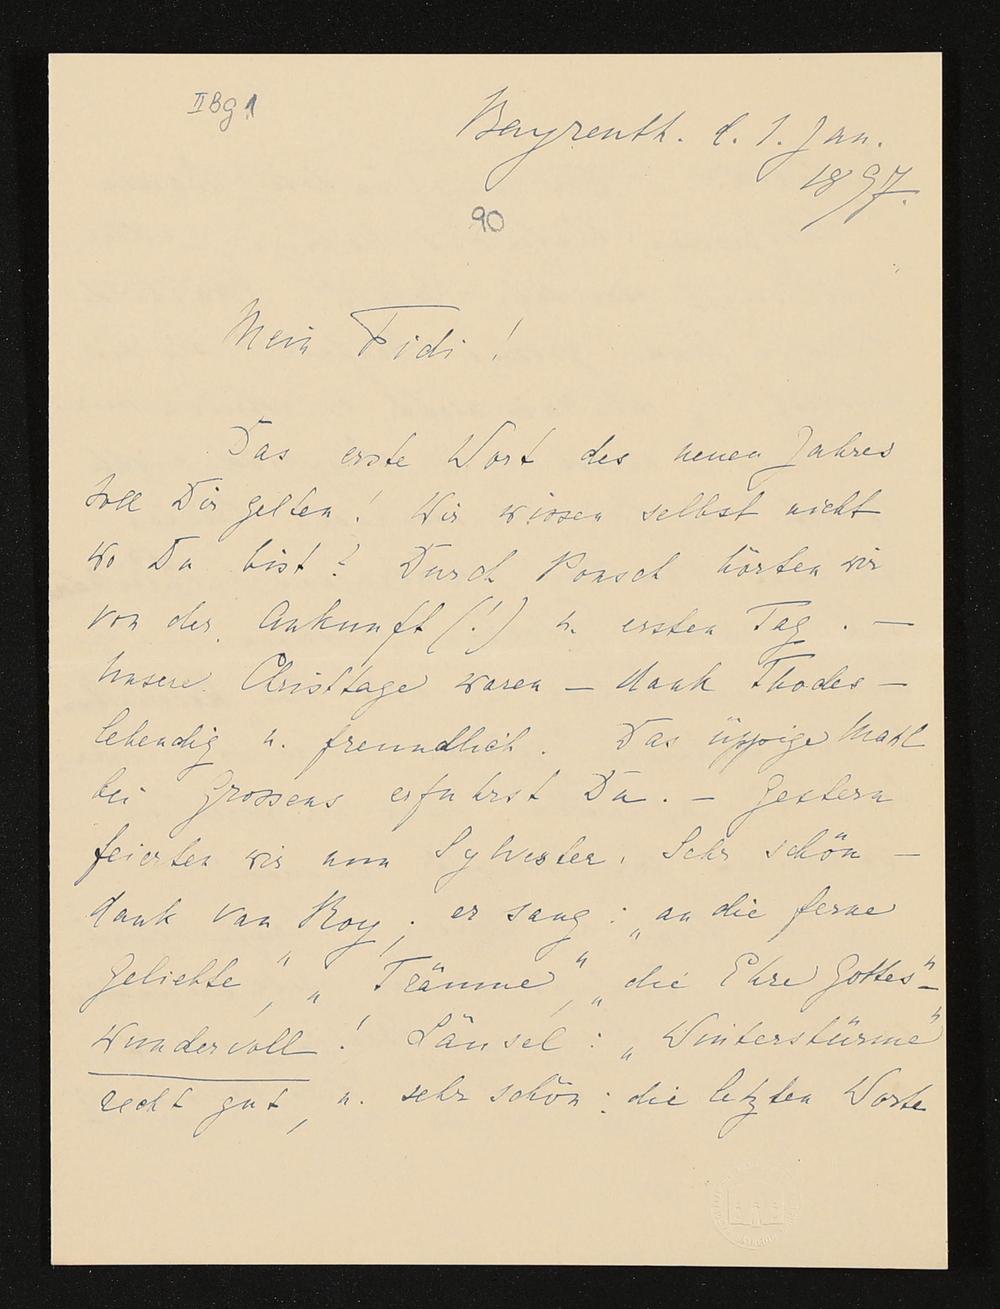 II B g 1
Bayreuth. d. 1. Jan.
1897.
90
Mein Fidi!
Das erste Wort des neuen Jahres
soll Dir gelten! Wir wissen selbst nicht
wo Du bist? Durch Ponsch hörten wir
von der Ankunft (!) u. ersten Tag. —
Unsere Christtage waren — dank Thodes —
lebendig u. freundlich. Das üppige Mahl
bei Grossens erfuhrst Du. — Gestern
feierten wir nun Sylvester. Sehr schön —
dank van Roy; er sang: „an die ferne
Geliebte", „Träume", „die Ehre Gottes" —
wundervoll! Länsel: „Winterstürme"
recht gut, u. sehr schön: die letzten Worte